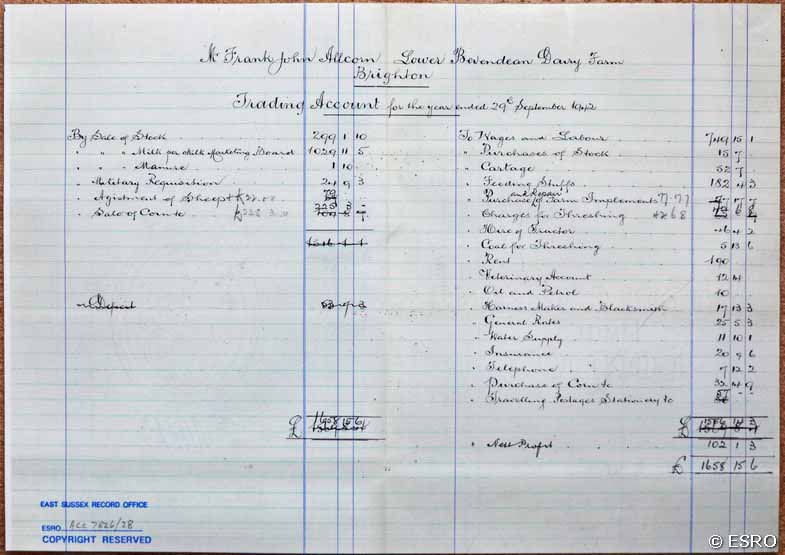 Mr Frank John Allcorn Lower Bevendean Dairy Farm
Brighton
Trading Account for the year ended 29th September 1942
By Sale of Stock 299 1 10
" " " Milk per Milk Marketing Board 1029 11 5
" " " Manure 1 10
" Military Requisition 24 9 3
" Agistment of Sheep
" Sale of Corn &c
" Deposit
£ 1658 15 6
To Wages and Labour 749 15 1
" Purchases of Stock 15 7
" Cartage 52 7
" Feeding Stuffs 182 4 3
" Purchase and Repair of Farm Implements
" Charges for Threshing
" Hire of Tractor 46 4 2
" Coal for Threshing 5 13 6
" Rent 190
" Veterinary Account 12 4
" Oil and Petrol 10
" Harness Maker and Blacksmith 17 13 3
" General Rates 25 5 3
" Water Supply 11 10 1
" Insurance 20 9 6
" Telephone 7 12 2
" Purchase of Corn &c 32 4 9
" Travelling Postages Stationery &c
£
" Nett Profit 102 1 3
£ 1658 15 6
EAST SUSSEX RECORD OFFICE
ESRO ACC 7826/28
COPYRIGHT RESERVED
© ESRO